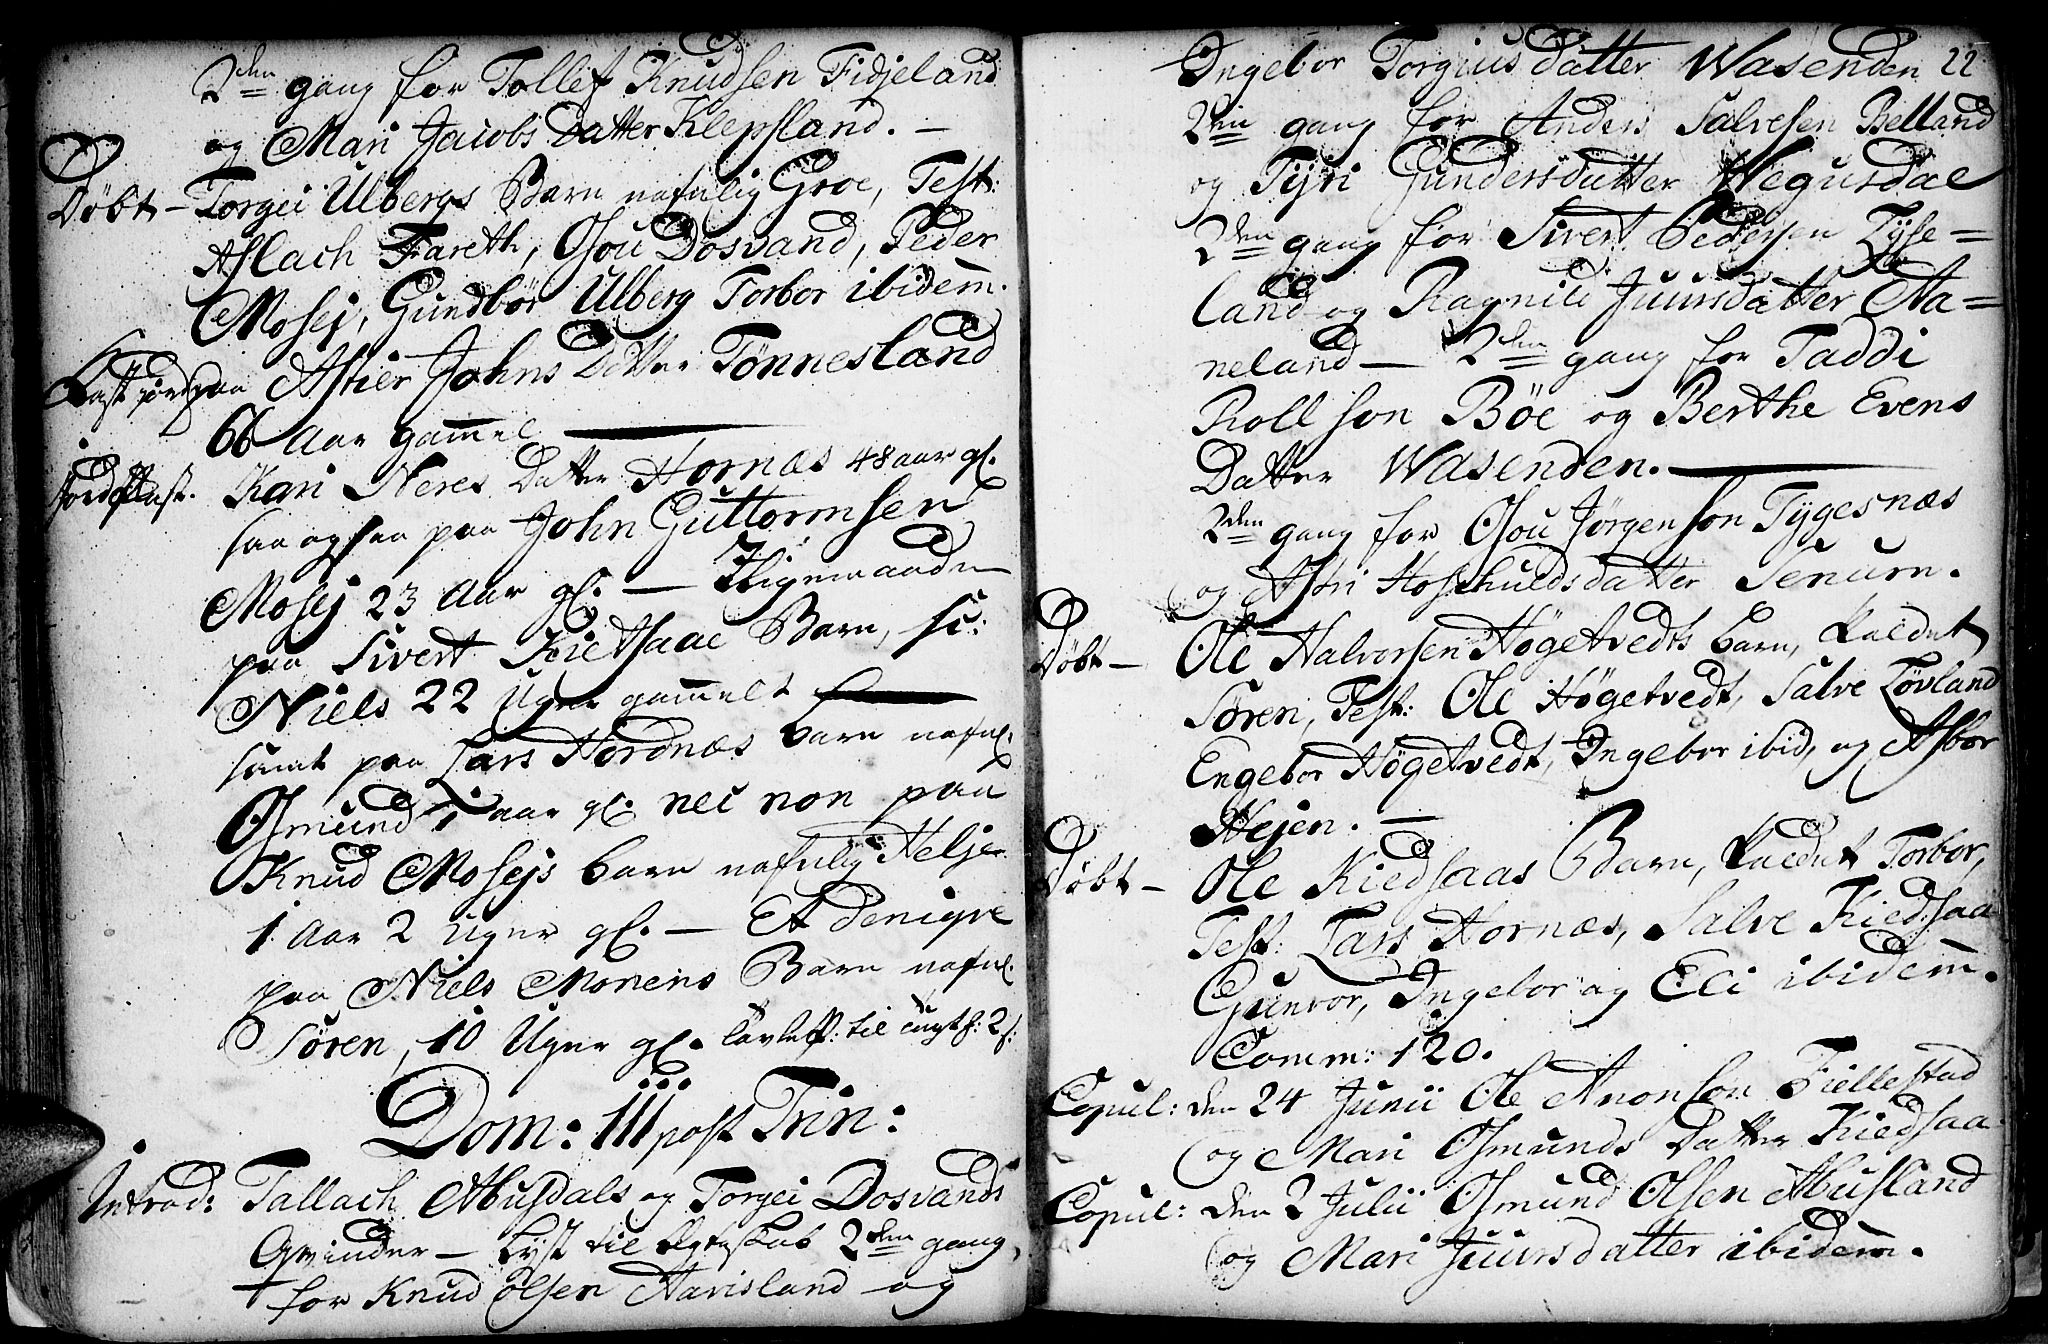 2den gang for Tollef Knudsen Fidjeland
og Mari Jacobs Datter Klepsland. —
Döbt — Torgei Ulbergs Barn nafnlig Groe, Test:
Aslach Fareth, Osou Dosvand, Peder
Mosej, Gundbör Ulberg Torbor ibidem.
Kast jord paa Astier Johns Datter Tönnesland
66 Aar gammel
jordfest. Kari Neres Datter Hornæs 48 aar gl.
saa og paa John Guttormsen
Mosej 23 Aar gl. — Iligemaade
paa Sivert Kietsaae Barn, sc:
Niels 22 Uger gammelt
samt paa Lars Hordnæs barn nafnl.
Osmund 1 aar gl. nec non paa
Knud Mosejs barn nafnlig Helje
1 Aar 2 Uger gl. — Et deniqve
paa Niels Monens Barn nafnl.
Sören, 10 Uger gl. til 2
Dom: III post Trin:
Introd: Tallach Abusdals og Torgei Dosvands
Qvinder — Lyst til Egteskab 2den gang,
for Knud Olsen Aavisland og
Ingebor Torgius datter Wasenden 22
2den gang for Anders Salvesen Belland
og Tyri Gundersdatter Wegusdal
2den gang for Sivert Pedersen Lyse=
land og Ragnild Juursdatter Aa=
neland — 2den gang for Taddi
Rollson Böe og Berthe Evens
Datter Wasenden.
2den gang for Osou Jörgenson Tygesnæs
og Astri Hoskulds datter Senum.
Döbt — Ole Halvorsen Högetvedts barn, kaldet
Sören, Test: Ole Högetvedt, Salve Lövland
Engebor Högetvedt, Ingebor ibid, og Asbor
Hejen. —
Döbt — Ole Kiedsaas Barn, kaldet Torbor,
Test: Lars Hornæs, Salve Kiedsaa
Gunvor, Ingebor og Eli ibidem.
Comm: 120.
Copul: den 24 Junii Ole Anonson Fiellestad
og Mari Osmunds Datter Kiedsaa
Copul: den 2 Julii Osmund Olsen Abusland
og Mari Juursdatter ibidem.